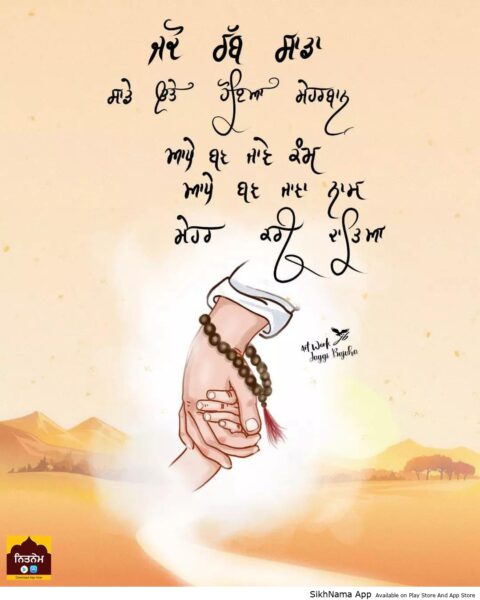 ਜਦੋਂ ਰੱਬ ਸਾਡਾ
ਸਾਡੇ ਉੱਤੇ ਹੋਇਆ ਮੇਹਰਬਾਨ
ਆਪੇ ਬਣ ਜਾਣੇ ਕੰਮ
ਆਪੇ ਬਣ ਜਾਣਾ ਨਾਮ
ਮੇਹਰ ਕਰੀਂ ਦਾਤਿਆ
Art Work
Jaggi
ਨਿਤਨੇਮ
Download App Now
SikhNama App Available on Play Store And App Store